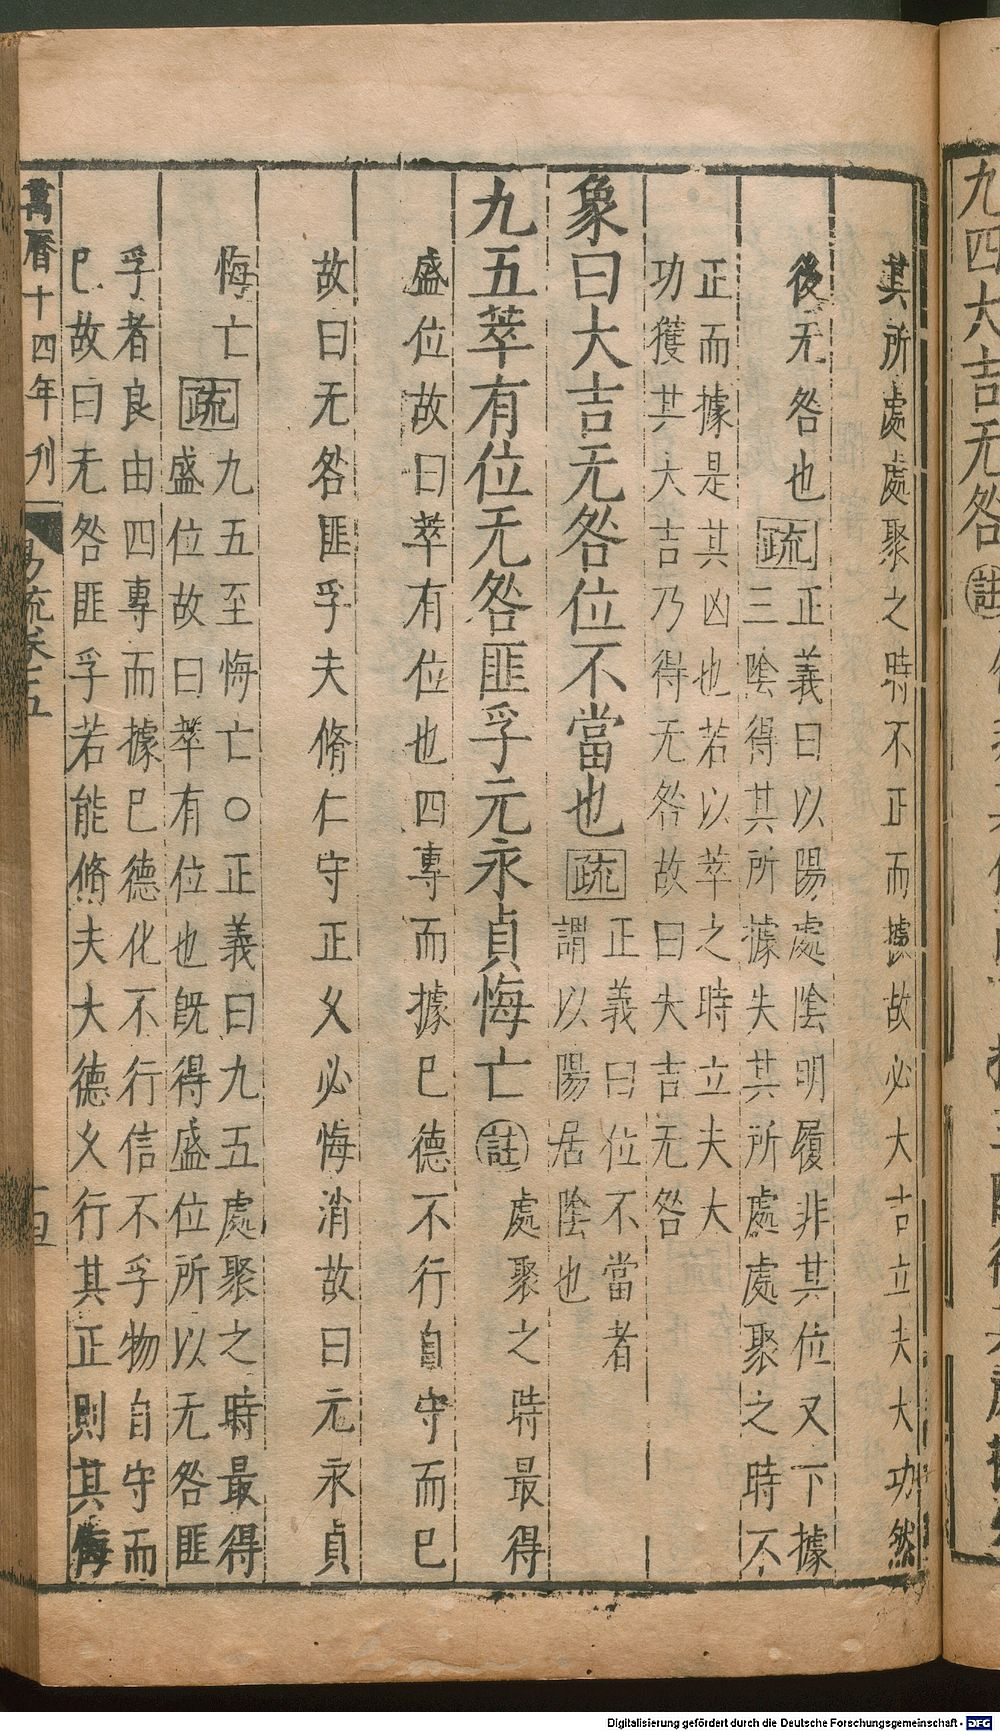 九四大吉无咎註
其所處處聚之時不正而據故必大吉立夫大功然
後无咎也疏正義曰以陽處陰明履非其位又下據
三陰得其所據失其所處處聚之時不
正而據是其凶也若以萃之時立夫大
功獲其大吉乃得无咎故曰大吉无咎
象曰大吉无咎位不當也疏正義曰位不當者
謂以陽居陰也
九五萃有位无咎匪孚元永貞悔亡註處聚之時最得
盛位故曰萃有位也四專而據已德不行自守而已
故曰无咎匪孚夫脩仁守正乆必悔消故曰元永貞
悔亡疏九五至悔亡○正義曰九五處聚之時最得
盛位故曰萃有位也旣得盛位所以无咎匪
孚者良由四專而據已德化不行信不孚物自守而
已故曰无咎匪孚若能脩夫大德乆行其正則其悔
萬曆十四年刊
易疏卷五
十四
Digitalisierung gefördert durch die Deutsche Forschungsgemeinschaft - DFG